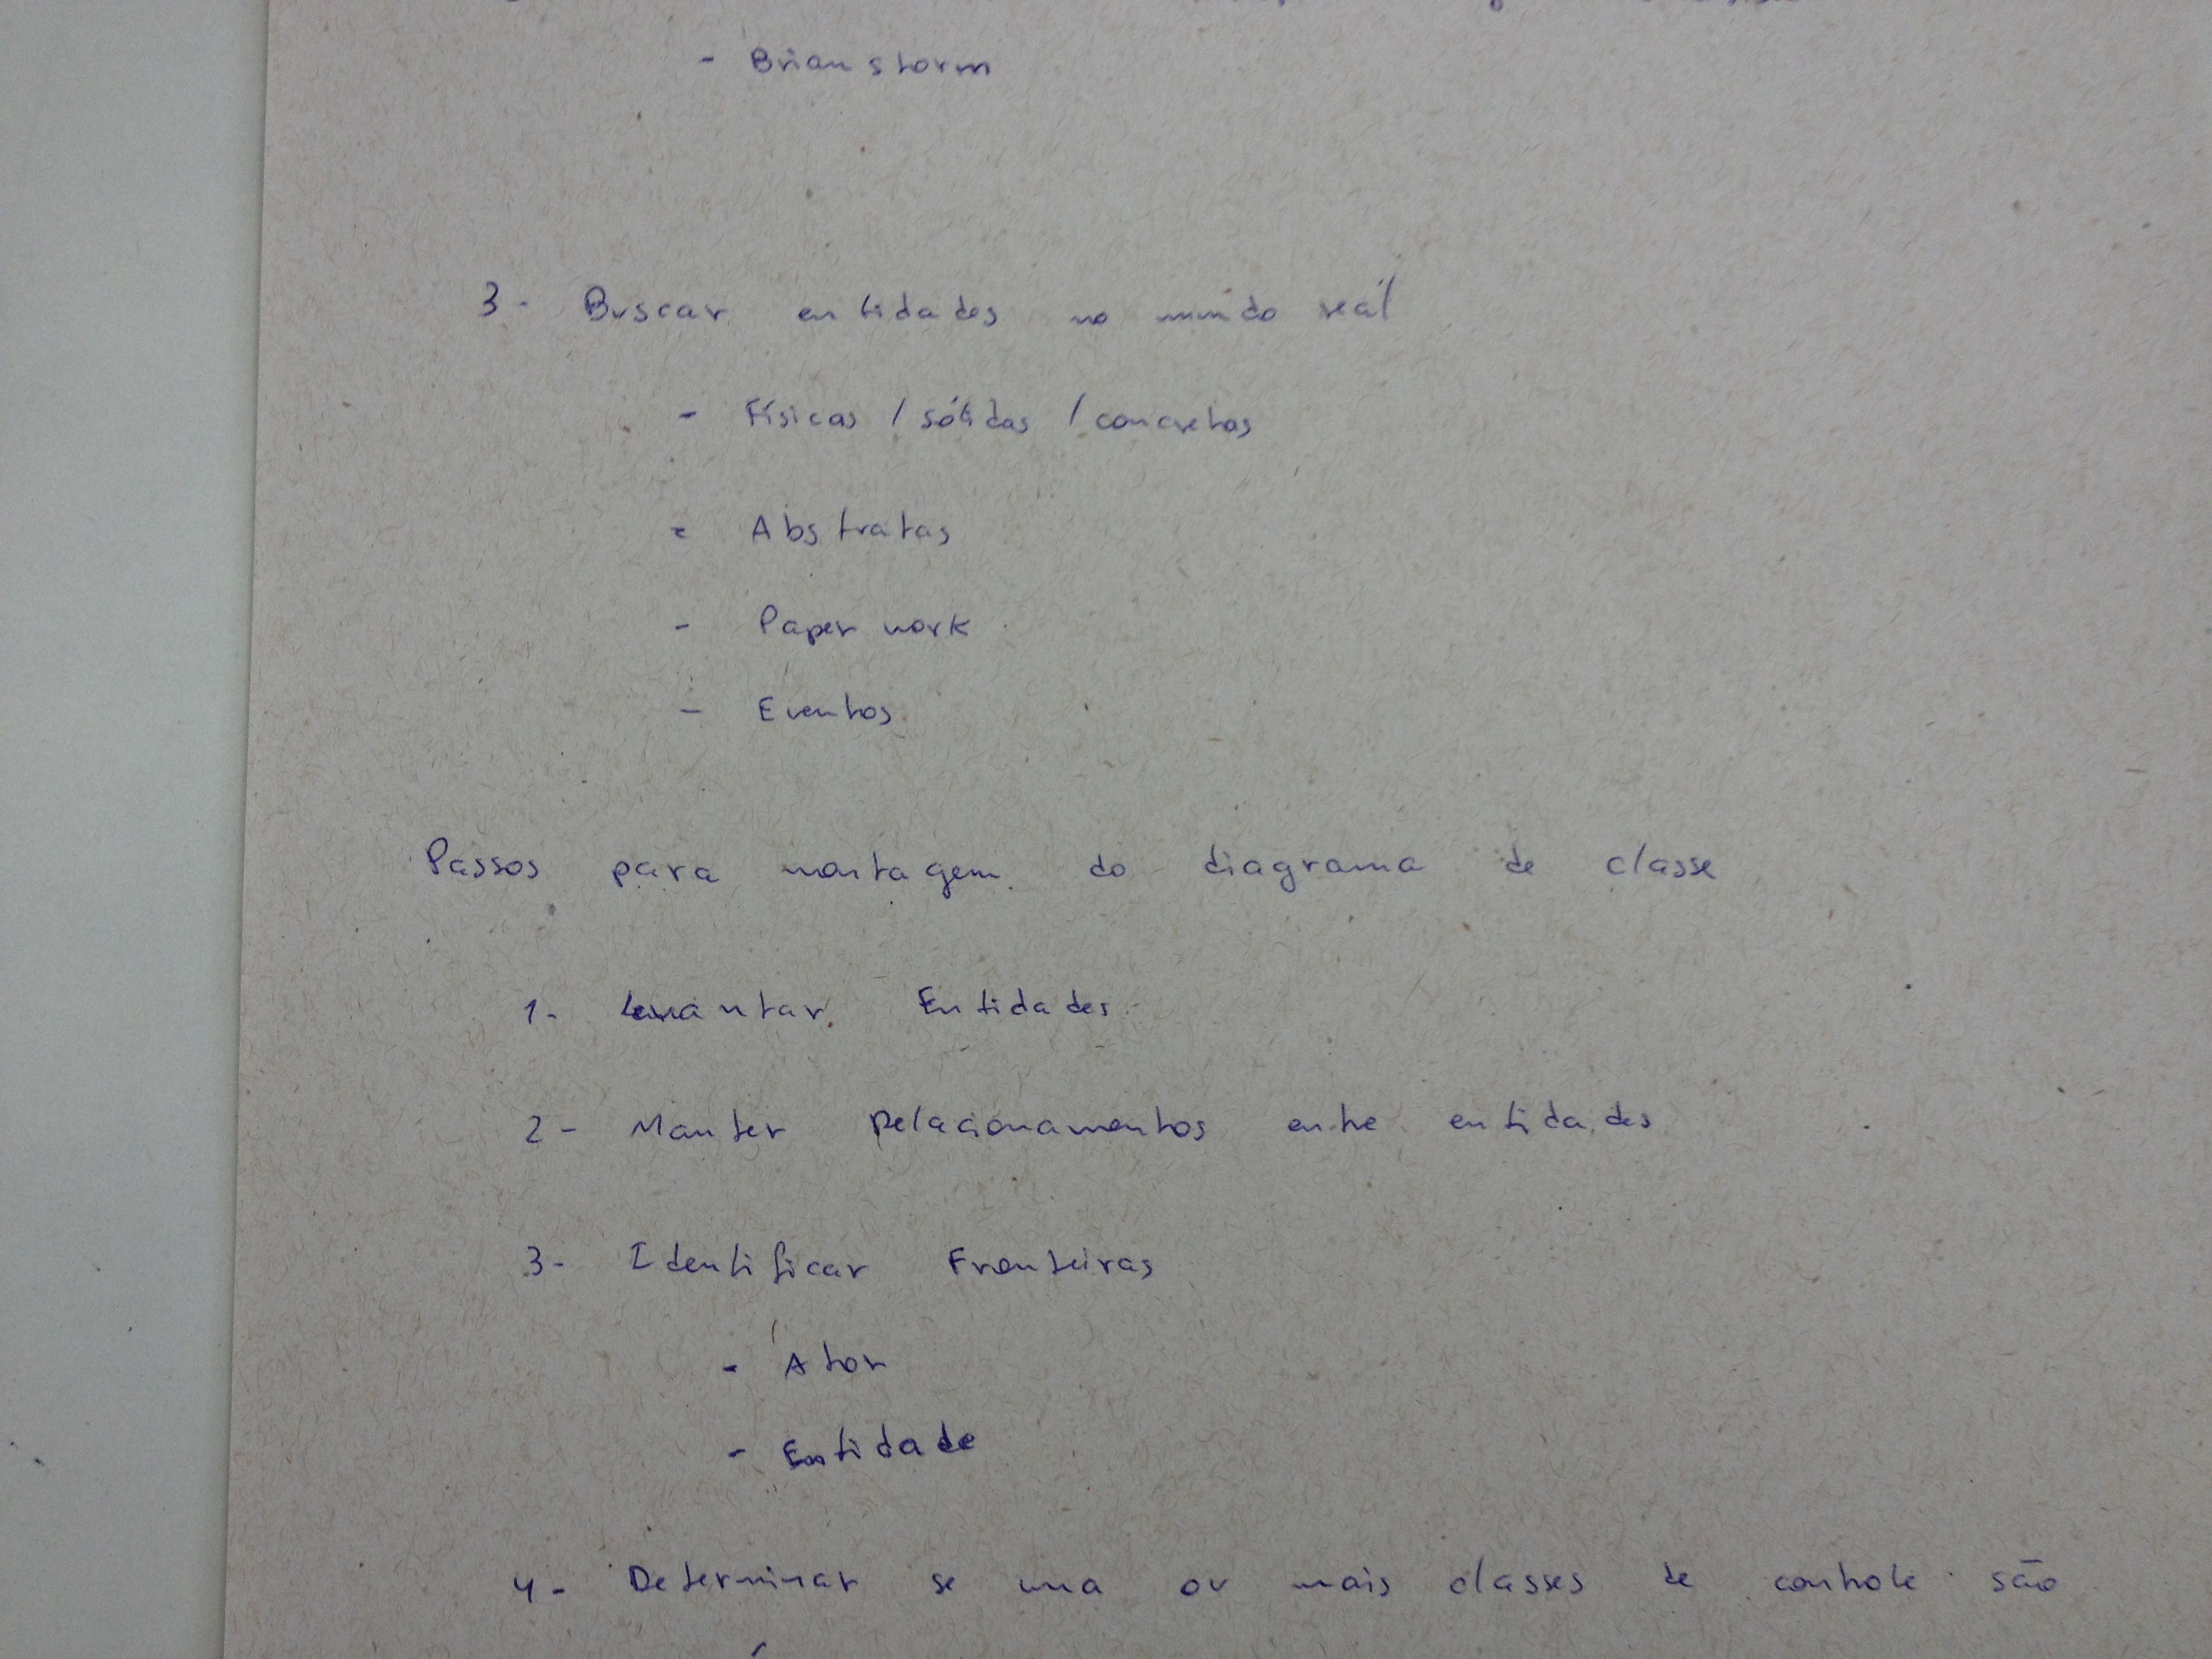 - Brianstorm
3- Buscar entidades no mundo real
- Físicas / sólidas / concretas
- Abstratas
- Paper work
- Eventos
Passos para montagem do diagrama de classe
1- Levantar Entidades
2- Manter Relacionamentos entre entidades
3- Identificar Fronteiras
- Ator
- Entidade
4- Determinar se uma ou mais classes de controle são